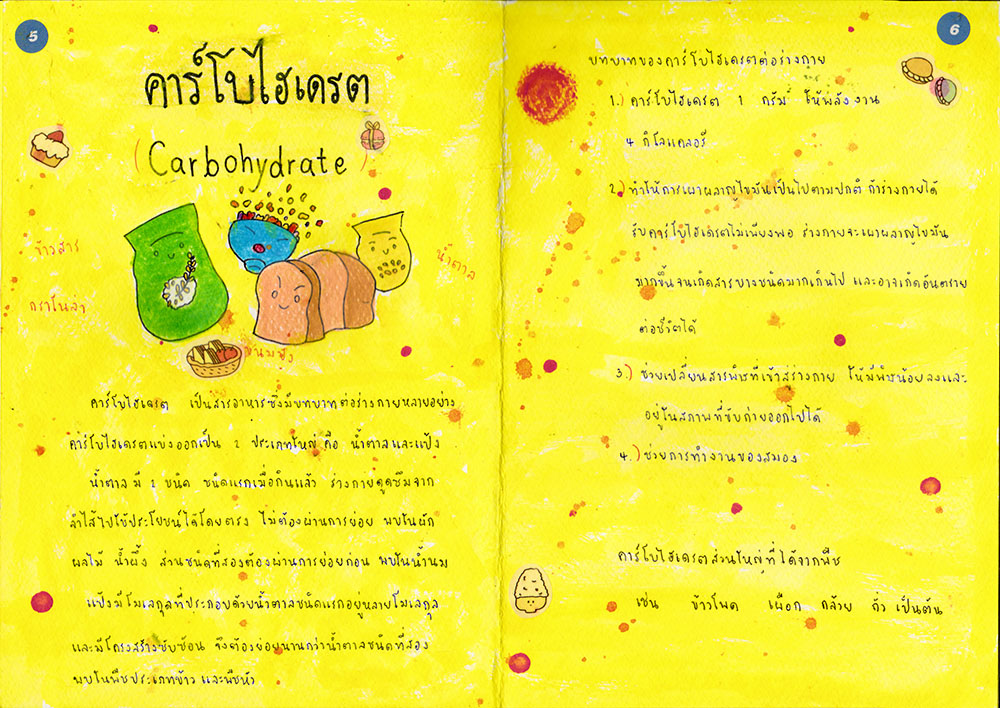 5
คาร์โบไฮเดรต
(Carbohydrate)
ข้าวสาร
กราโนล่า
น้ำตาล
ขนมปัง
คาร์โบไฮเดรต เป็นสารอาหารซึ่งมีบทบาทต่อร่างกายหลายอย่าง
คาร์โบไฮเดรตแบ่งออกเป็น 2 ประเภทใหญ่ คือ น้ำตาลและแป้ง
น้ำตาล มี 2 ชนิด ชนิดแรกเมื่อกินแล้ว ร่างกายดูดซึมจาก
ลำไส้ไปใช้ประโยชน์ได้โดยตรง ไม่ต้องผ่านการย่อย พบในผัก
ผลไม้ น้ำผึ้ง ส่วนชนิดที่สองต้องผ่านการย่อยก่อน พบในน้ำนม
แป้งมีโมเลกุลที่ประกอบด้วยน้ำตาลชนิดแรกอยู่หลายโมเลกุล
และมีโครงสร้างซับซ้อน จึงต้องย่อยนานกว่าน้ำตาลชนิดที่สอง
พบในพืชประเภทข้าว และพืชหัว
6
บทบาทของคาร์โบไฮเดรตต่อร่างกาย
1.) คาร์โบไฮเดรต 1 กรัม ให้พลังงาน
4 กิโลแคลอรี
2.) ทำให้การเผาผลาญไขมันเป็นไปตามปกติ ถ้าร่างกายได้
รับคาร์โบไฮเดรตไม่เพียงพอ ร่างกายจะเผาผลาญไขมัน
มากขึ้นจนเกิดสารบางชนิดมากเกินไป และอาจเกิดอันตราย
ต่อชีวิตได้
3.) ช่วยเปลี่ยนสารพิษที่เข้าสู่ร่างกาย ให้มีพิษน้อยลงและ
อยู่ในสภาพที่ขับถ่ายออกไปได้
4.) ช่วยการทำงานของสมอง
คาร์โบไฮเดรตส่วนใหญ่ที่ได้จากพืช
เช่น ข้าวโพด เผือก กล้วย ถั่ว เป็นต้น